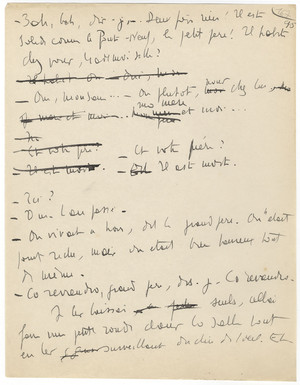 — Bah, bah, dis-je... Pour rien! Il est
solide comme le Pont-Neuf, le petit père! Il habite
chez vous,
— Oui, monsieur... — ou plutôt, nous chez lui
ma mère et moi...
— Et votre père? — Et votre père?
Il est mort. — Il est mort.
— Ici?
— D... L'an passé.
— On vivait à trois, dit le grand-père. On était
point riche, mais on était bien heureux tout
de même.
— Ça reviendra, grand-père, dis-je. Ça reviendra.
Je les laissai seuls, allai
faire une petite ronde dans la salle tout
en les surveillant du coin de l'œil. Et